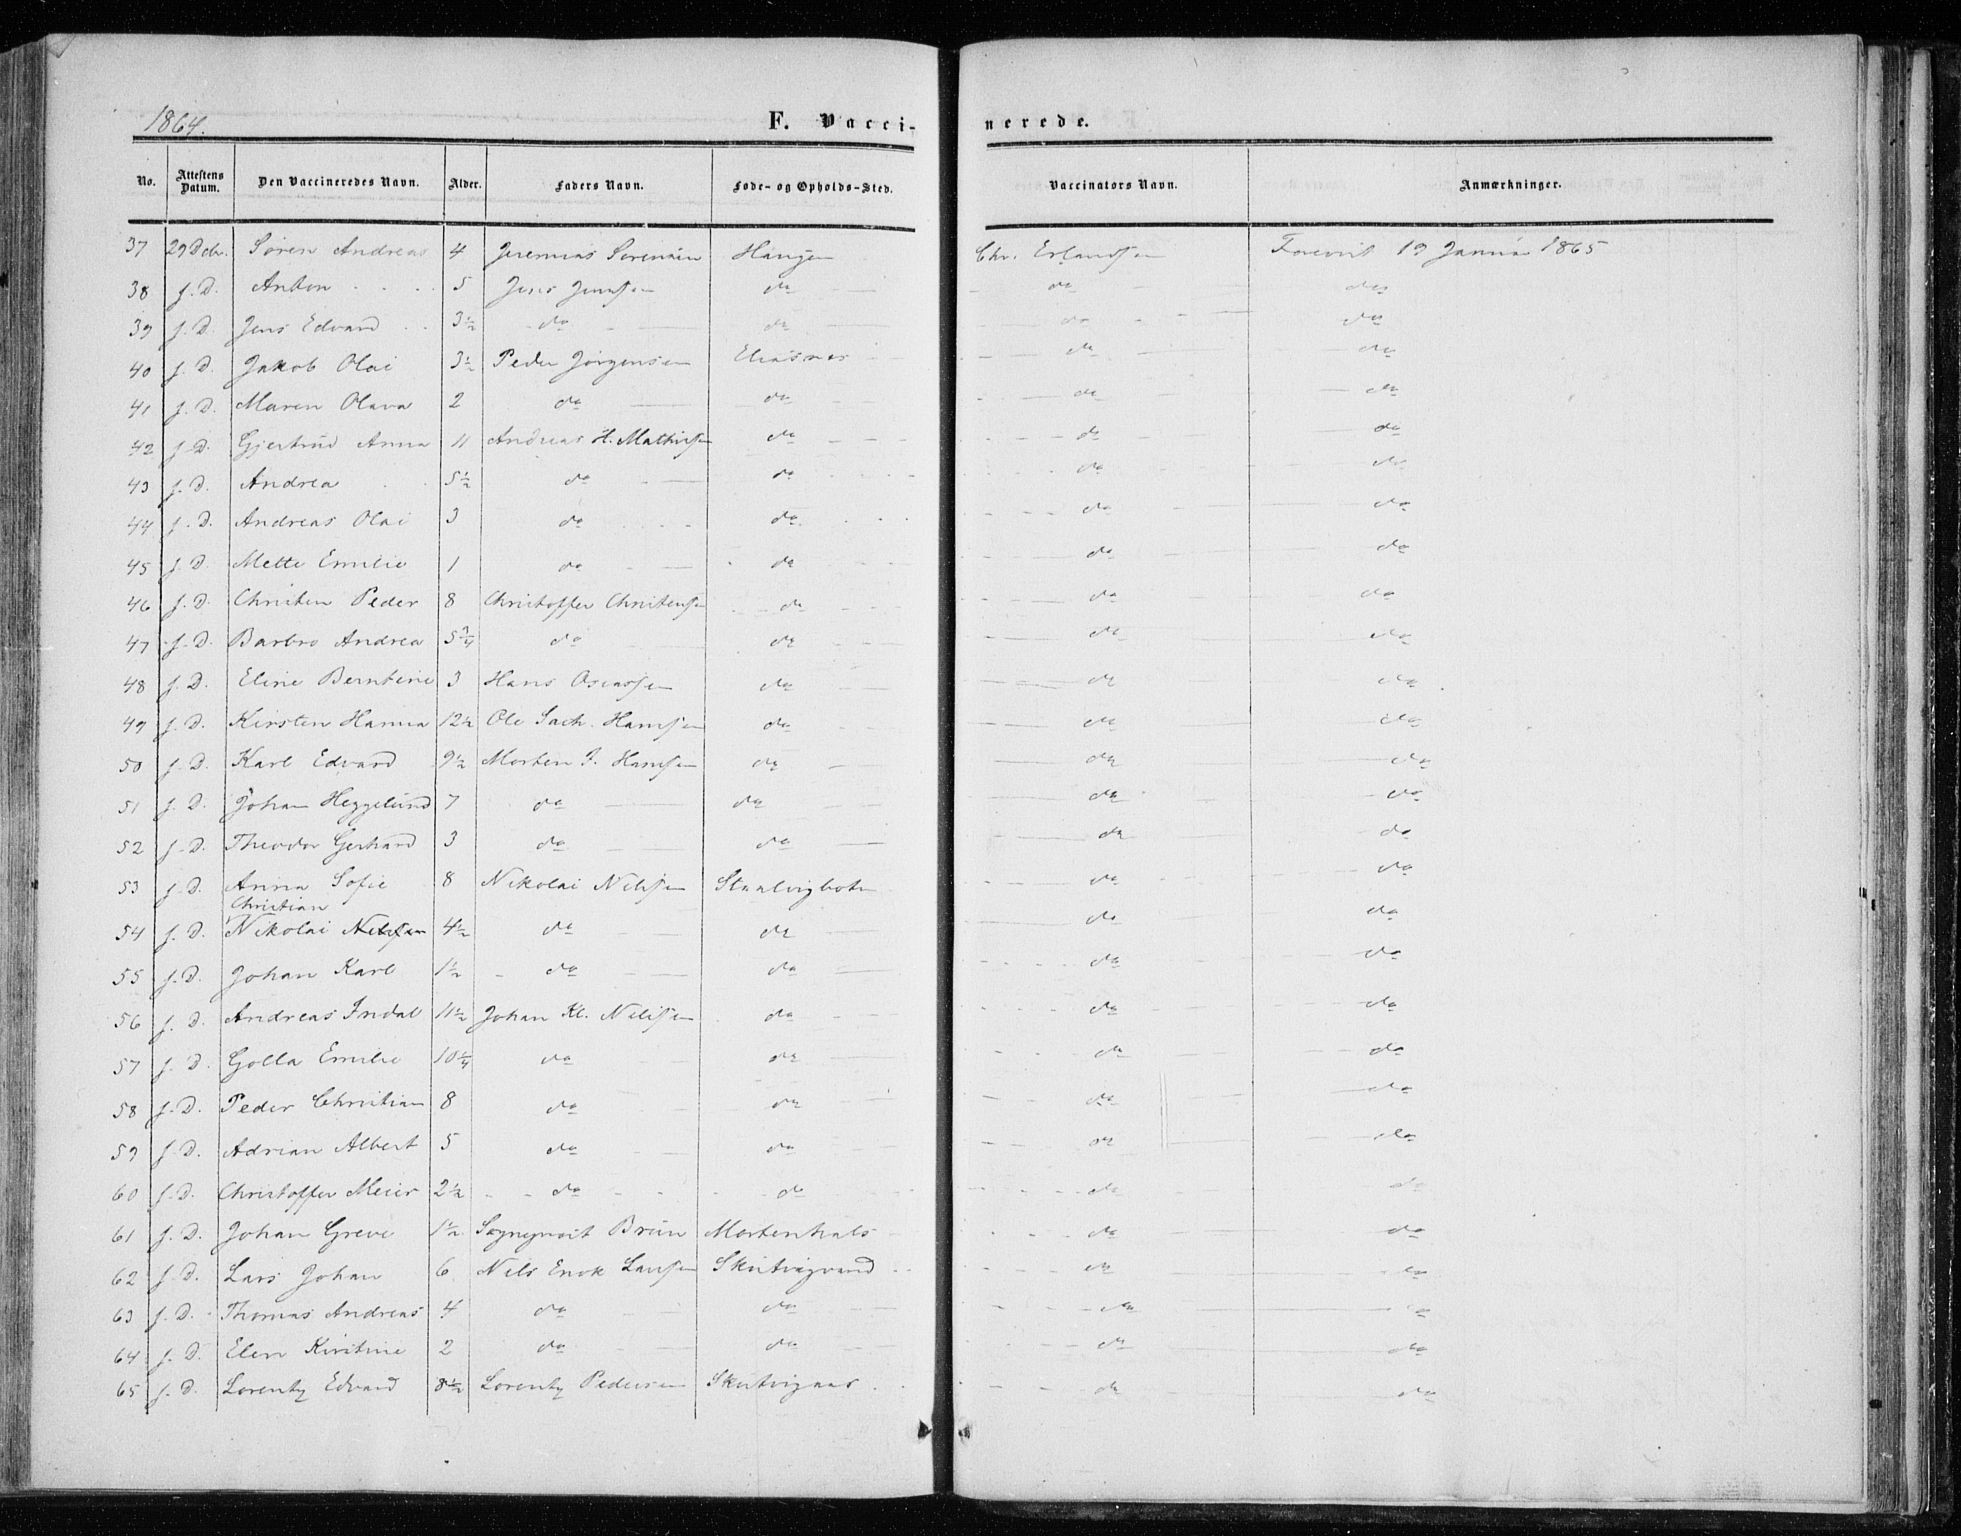 1864.
F. Vacci-nerede.
No. | Attestens Datum. | Den Vaccineredes Navn. | Alder. | Faders Navn. | Føde- og Opholds-Sted. | Vaccinators Navn. | Anmærkninger.
37 | 29 Debr. | Søren Andreas | 4 | Jeremias Sørensen | Haugen | Chr. Erlandsen | Forevist 19 Januar 1865
38 | f. D. | Anton | 5 | Jens Jensen | do | do | do
39 | f. D. | Jens Edvard | 3½ | do | do | do | do
40 | f. D. | Jakob Olai | 3½ | Peder Jørgensen | Eliasnes | do | do
41 | f. D. | Maren Olava | 2 | do | do | do | do
42 | f. D. | Gjertrud Anna | 11 | Andreas H. Mathisen | do | do | do
43 | f. D. | Andrea | 5½ | do | do | do | do
44 | f. D. | Andreas Olai | 3 | do | do | do | do
45 | f. D. | Mette Emilie | 1 | do | do | do | do
46 | f. D. | Christen Peder | 8 | Christoffer Christensen | do | do | do
47 | f. D. | Barbro Andrea | 5¾ | do | do | do | do
48 | f. D. | Eline Berntine | 3 | Hans Oseassen | do | do | do
49 | f. D. | Kirsten Hanna | 12½ | Ole Zach. Hansen | do | do | do
50 | f. D. | Karl Edvard | 9½ | Morten J. Hansen | do | do | do
51 | f. D. | Johan Heggelund | 7 | do | do | do | do
52 | f. D. | Theodor Gerhard | 3 | do | do | do | do
53 | f. D. | Anna Sofie | 8 | Nikolai Nilsen | Staalvigbotn | do | do
Christian
54 | f. D. | Nikolai Nilsen | 4½ | do | do | do | do
55 | f. D. | Johan Karl | 1½ | do | do | do | do
56 | f. D. | Andreas Indal | 11½ | Johan Kl. Nilsen | do | do | do
57 | f. D. | Golla Emilie | 10¼ | do | do | do | do
58 | f. D. | Peder Christian | 8 | do | do | do | do
59 | f. D. | Adrian Albert | 5 | do | do | do | do
60 | f. D. | Christoffer Meier | 2½ | do | do | do | do
61 | f. D. | Johan Greve | 1½ | Sogneprest Brun | Mortenhals | do | do
62 | f. D. | Lars Johan | 6 | Nils Enok Larsen | Skutvigvand | do | do
63 | f. D. | Thomas Andreas | 4 | do | do | do | do
64 | f. D. | Elen Kirstine | 2 | do | do | do | do
65 | f. D. | Lorentz Edvard | 8½ | Lorentz Pedersen | Skutvignes | do | do